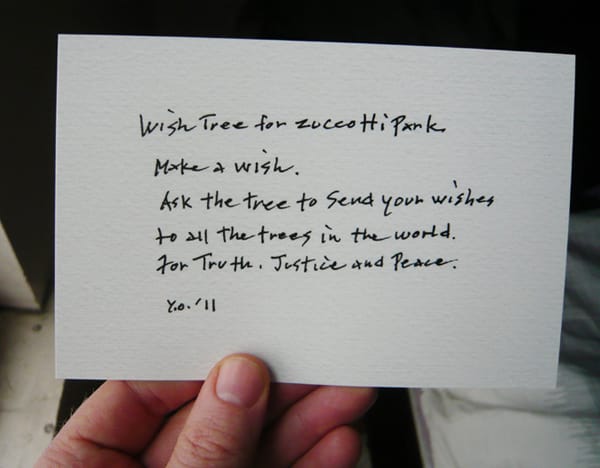 Wish Tree for Zuccotti Park
Make a wish.
Ask the tree to send your wishes
to all the trees in the world.
For Truth. Justice and Peace.
Y.O. '11